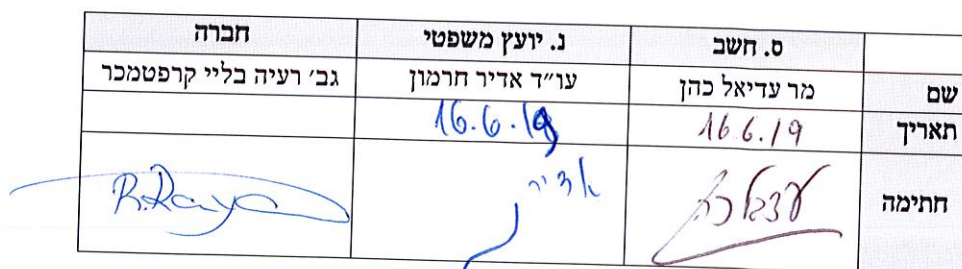 ס. חשב נ. יועץ משפטי חברה
שם מר עדיאל כהן עו״ד אדיר חרמון גב׳ רעיה בליי קרפטמכר
תאריך 16.6.19 16.6.19
חתימה אדיר R.Raya